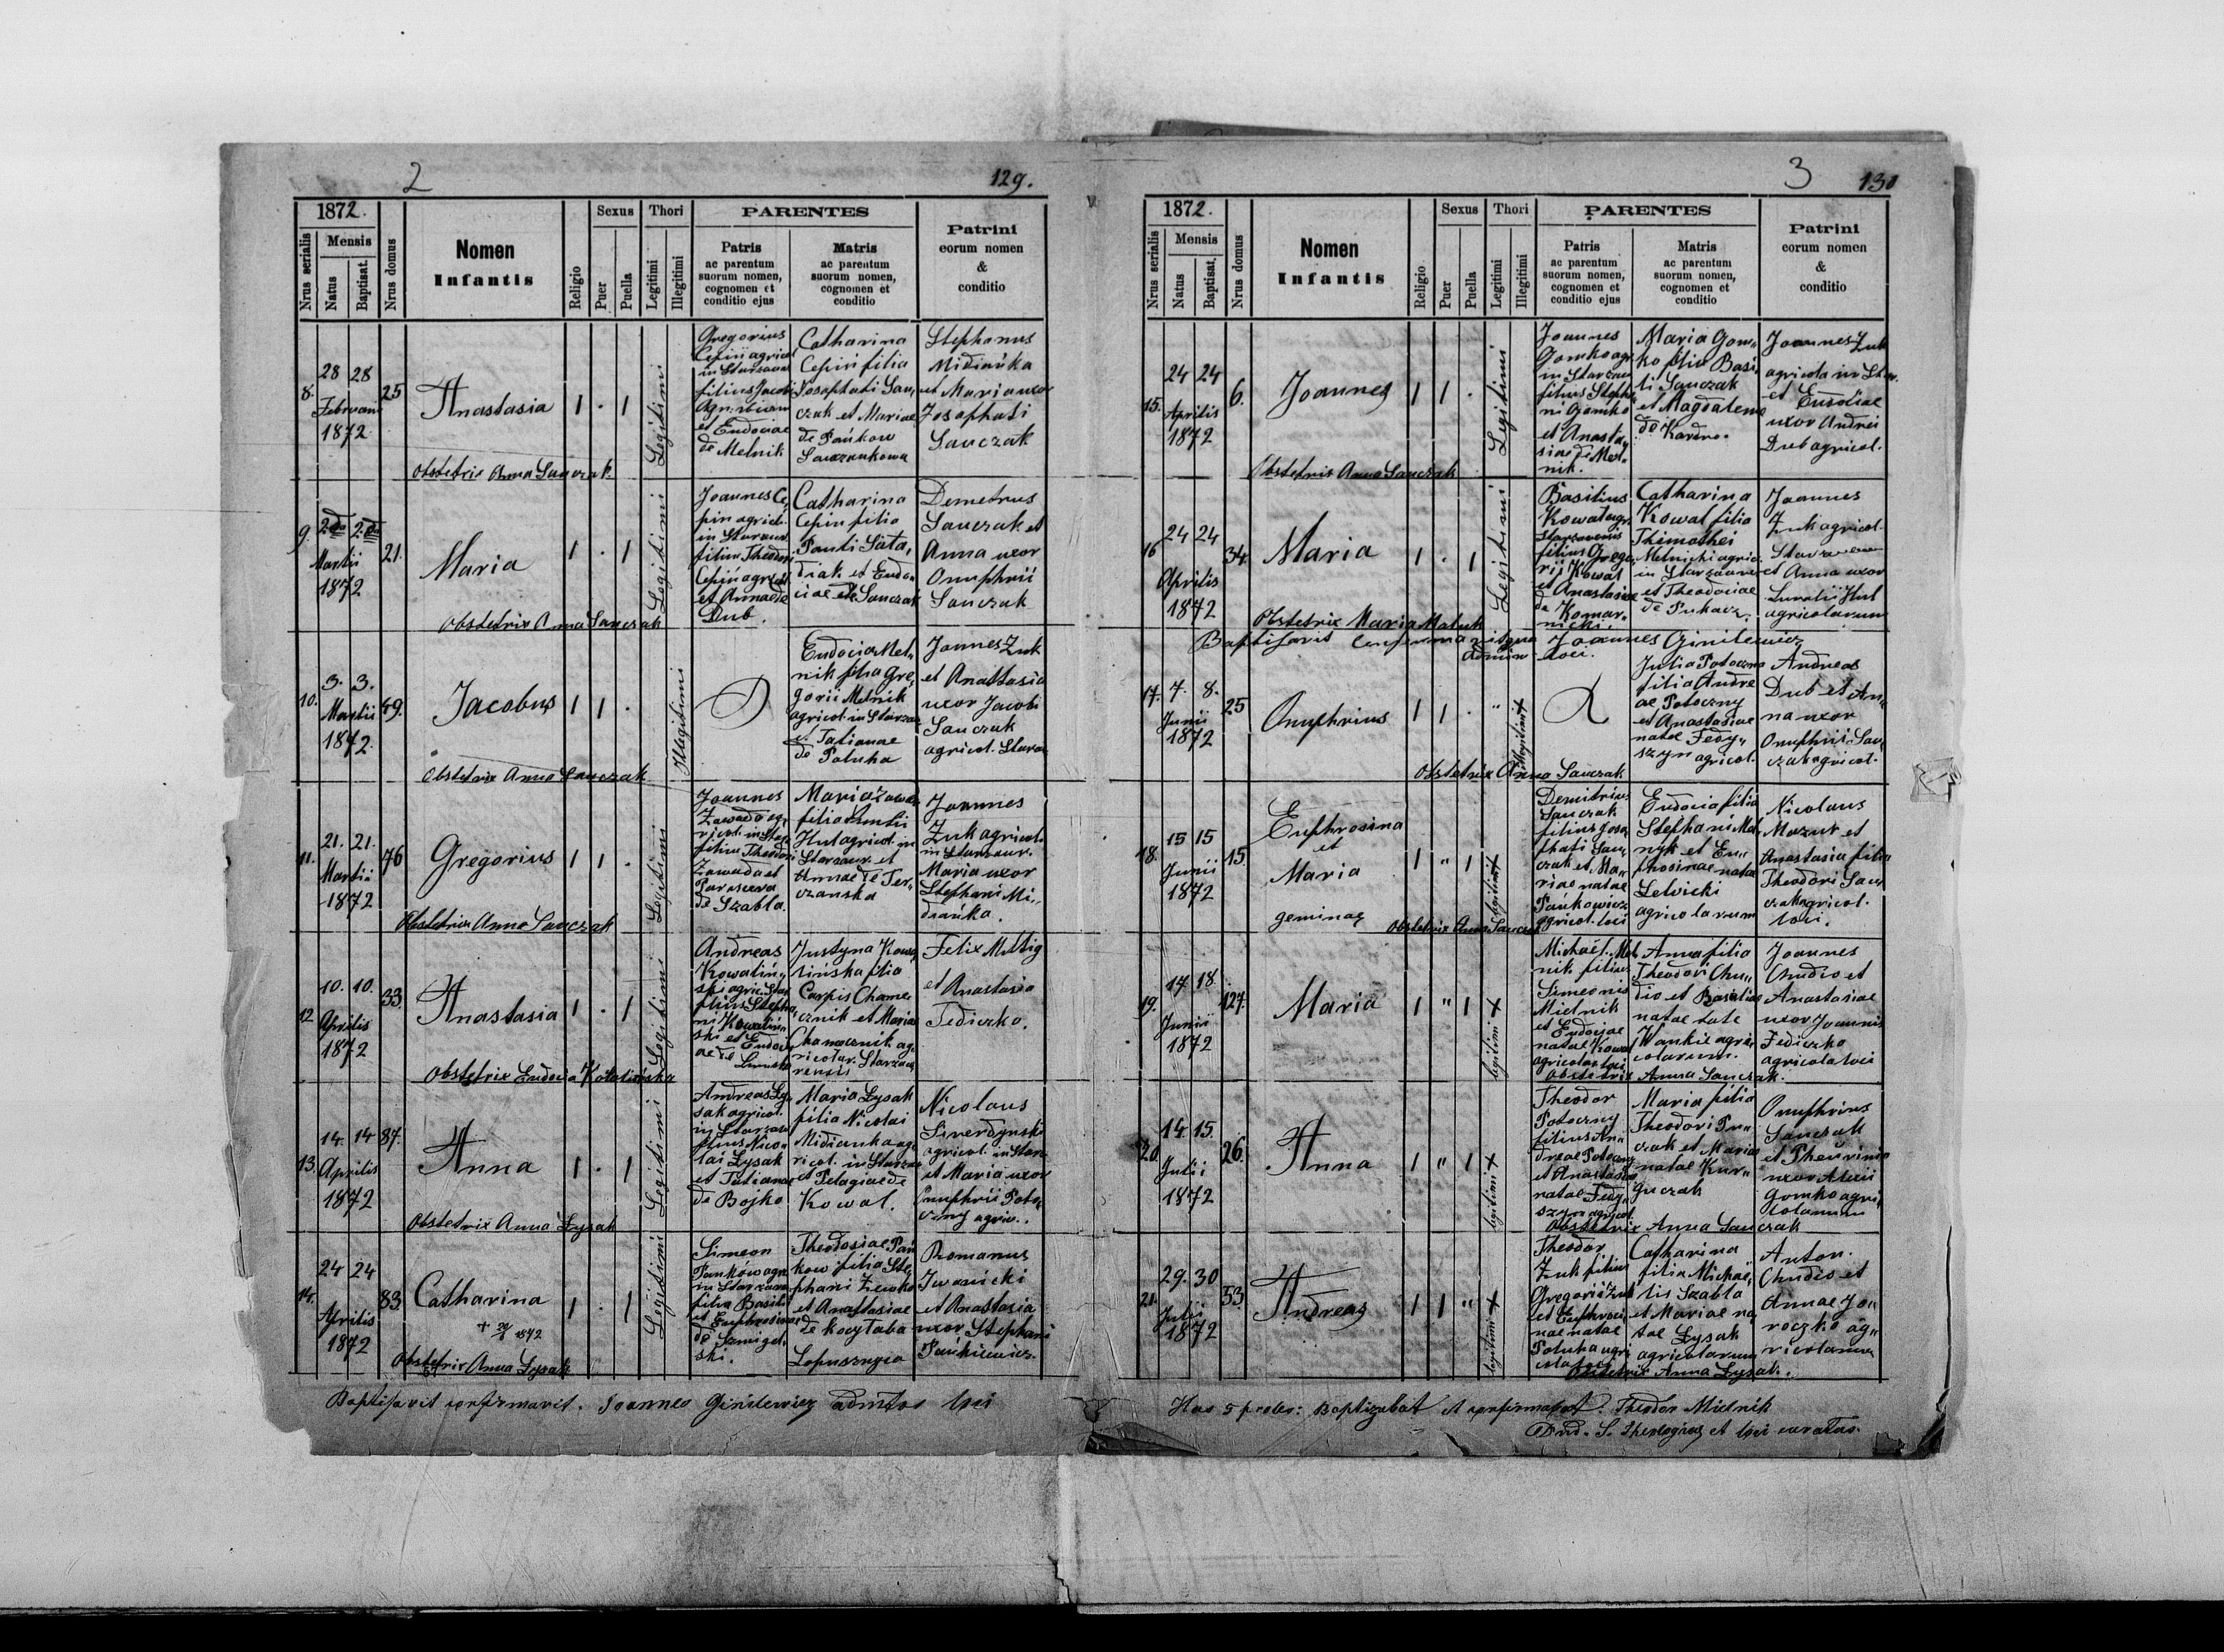 2
129.
1872.
Nrus serialis
Mensis
Natus
Baptisat.
Nrus domus
Nomen
Infantis
Religio
Sexus
Puer
Puella
Thori
Legitimi
Illegitimi
PARENTES
Patris
ac parentum
suorum nomen,
cognomen et
conditio ejus
Matris
ac parentum
suorum nomen,
cognomen et
conditio
Patrini
eorum nomen
&
conditio
8.
28 28
Februarii
1872
25
Anastasia
1 . 1
Legitimi
Gregorius
Cepiń agricol
in Starzawa
filius Jacobi
et Eudociae
de Melnik
Catharina
Cepiń filia
Josaphati Sau,
czak et Mariae
de Pańkow
Sauczakowa
Stephanus
Midiańka
et Maria uxor
Josaphati
Sauczak
Obstetrix Anna Sauczak.
9.
2da 2da
Martii
1872
21.
Maria
1 . 1
Legitimi
Joannes Ce,
pin agricol.
in Starzaw.
filius Theodori
Cepiń agricol
et Anna de
Dub.
Catharina
Cepin filia
Pauli Sata,
diak et Eudo
ciae de Sauczak
Demetrus
Sauczak et
Anna uxor
Onuphrii
Sauczak
Obstetrix Anna Sauczak
10.
3. 3.
Martii
1872.
49.
Jacobus
1 1 .
Illegitimi
Eudocia Mel,
nik filia Gre,
gorii Melnik
agricol. in Starzaw
et Tatianae
de Potuha
Joannes Zuk
et Anastasia
uxor Jacobi
Sauczak
agricol. Starza
Obstetrix Anna Sauczak
11.
21. 21.
Martii
1872
76
Gregorius
1 1 .
Legitimi
Joannes
Zawada ag,
ricol. in Starz
filius Theodori
Zawada et
Parasceva
de Szabla.
Maria Zawa
filia
Hul agricol. in
Starzaw. et
Annae de Ter,
czanska
Joannes
Zuk agricol.
in Starzaw.
Maria uxor
Stephani Mi,,
diańka.
Obstetrix Anna Sauczak
12
10. 10.
Aprilis
1872
33
Anastasia
1 . 1
Legitimi
Andreas
Kowaliń,,
ski agric. Star
filius Stepha,
ni Kowaliń
ski et Eudoci
ae de
Justyna Kowa
lińska filia
Carpis Chame
cznik et Maria
Chamecznik ag,
ricolar. Starzaw
rensis
Felix Mittig
et Anastasia
Fediczko.
Obstetrix Eudocia Kowalinska
13.
14. 14
Aprilis
1872
87.
Anna
1 . 1
Legitimi
Andreas Ly,
sak agricol.
in Starzaw
filius Nico,
lai Lysak
et Tatianae
de Bojko
Maria Lysak
filia Nicolai
Midianka ag
ricol. in Starzaw
et Pelagiae de
Kowal.
Nicolaus
Siverdynski
agricol. in Starz
et Maria uxor
Onuphrii Poto,
czny agric.
Obstetrix Anna Lysak
14.
24 24
Aprilis
1872
83
Catharina
1 . 1
Legitimi
Simeon
Pańków agr
in Starzawa
filius Basili
et Euphrosinae
ski.
Theodosiae Pań
kow filia Ste,
phani Zewko
et Anastasiae
de Kocytaba
Lopusznyca
Romanus
Iwanicki
et Anastasia
uxor Stephani
Pańkiewicz.
Obstetrix Anna Lysak
Baptisavit confirmavit. Joannes Ginilewicz admtor loci
3
130
1872.
Nrus serialis
Mensis
Natus
Baptisat.
Nrus domus
Nomen
Infantis
Religio
Sexus
Puer
Puella
Thori
Legitimi
Illegitimi
PARENTES
Patris
ac parentum
suorum nomen,
cognomen et
conditio ejus
Matris
ac parentum
suorum nomen,
cognomen et
conditio
Patrini
eorum nomen
&
conditio
15.
24 24
Aprilis
1872
6.
Joannes
1 1 .
Legitimi
Joannes
Gomko agr
in Starzaw
filius Steph
ni Gomko
et Anasta,
siae de Mel,
nik.
Maria Gom,,
ko filia Basi,
li Sauczak
et Magdalene
de Kardro.
Joannes Zuk
agricola in Star.
et Eudociae
uxor Andrei
Dub agricol.
Obstetrix Anna Sauczak
16
24 24
Aprilis
1872
34.
Maria
1 . 1
Legitimi
Basilius
Kowal agr.
Starzavensis
filius Grego,
rii Kowal
et Anastasiae
de Komar,
nicki.
Catharina
Kowal filia
Thimothei
Melnicki agric.
in Starzawa
et Theodociae
de Pukacz.
Joannes
Zuk agricol.
Starzaven
et Anna uxor
Hul
agricolarum
Obstetrix Maria Matuk
Baptisavit confirmavitque Joannes Ginilewicz
admin loci.
17.
7. 8.
Junii
1872
25
Onuphrius
1 1 .
Illegitimi +
Julia Potoczna
filia Andre
ae Potoczny
et Anastasiae
natae Fedy,,
szyn agricol.
Andreas
Dub et An,,
na uxor
Onuphrii Sau,
czak agricol.
Obstetrix Anna Sauczak
18.
15 15
Junii
1872
15.
Euphrosina
et
Maria
geminae
1 " 1
legitimi +
Demitrius
Sauczak
filius Josa,
phati Sau,,
czak et Ma,,
riae natae
Pańkowicz
agricol. loci
Eudocia filia
Stephani Mel,
nyk et Eu,,
phrosinae natae
Lewicki
agricolarum
Nicolaus
Mazur et
Anastasia filia
Theodori Sau,
czak agricol.
loci.
Obstetrix Anna Sauczak
19.
17. 18.
Junii
1872
127.
Maria
1 " 1
legitimi +
Michael Mel
nik filius
Simeonis
Mielnik
et Eudociae
natae Kowal
agricolae loci
Anna filia
Theodori Chu,,
dio et Basiliae
natae
Wankie agri,
colarum.
Joannes
Chudio et
Anastasiae
uxor Joannis
Fediczko
agricola loci
Obstetrix Anna Sauczak.
20.
14. 15.
Julii
1872
26.
Anna
1 " 1
legitimi +
Theodor
Potoczny
filius An,,
dreae Potoczny
et Anastasiae
natae Fedy,
szyn agricol.
Maria filia
Theodori Pru,,
czak et Mariae
natae Kur,,
guczak
Onuphrius
Sauczak
uxor Alexii
Gomko agri,
colarum
Obstetrix Anna Sauczak
21.
29. 30
Julii
1872
53.
Andreas
1 1 "
legitimi +
Theodor
Zuk filius
Gregorii Zuk
et Euphrosi,
nae natae
Potuha agri
Catharina
filia Michae,
lis Szabla
et Mariae na,
tae Lysak
agricolarum
Anton.
Chudio et
Annae Jo,,
roczko ag,,
ricolarum
Obstetrix Anna Lysak.
Has 5 proles: Baptizabat et confirmabat. Theodor Mielnik
S. Theologiae et loci curatus.